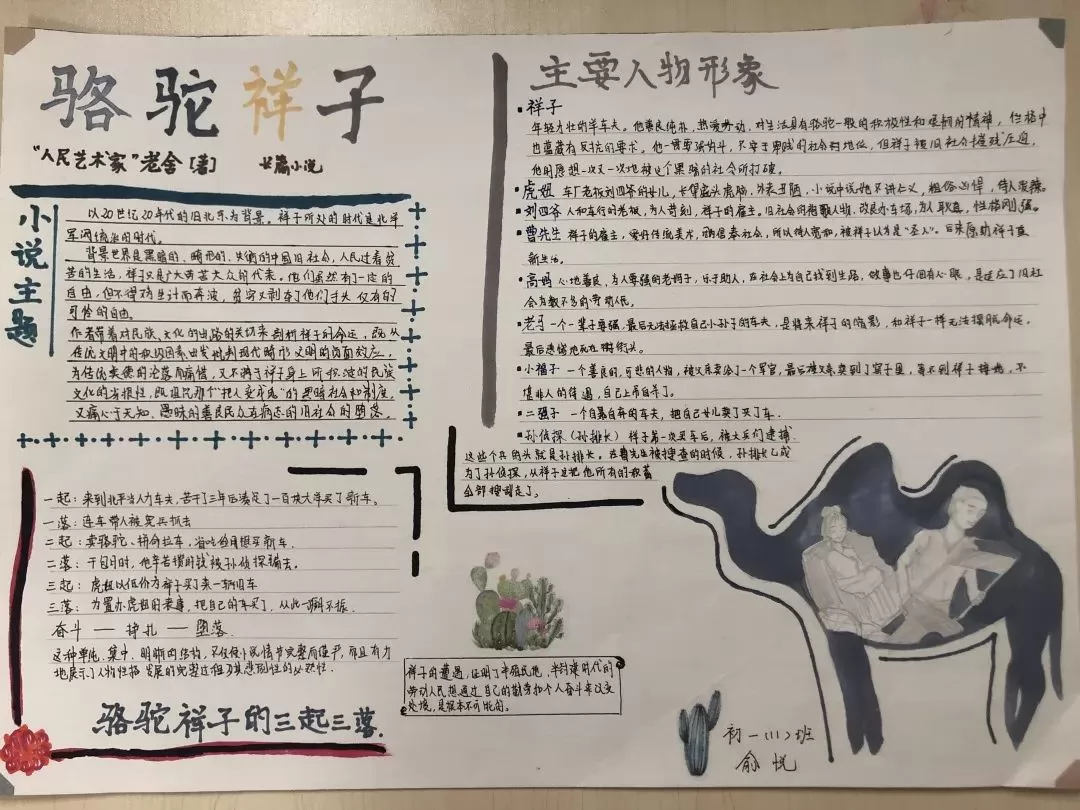 骆驼祥子
"人民艺术家"老舍[著] 长篇小说
小说主题
以20世纪20年代的旧北京为背景。祥子所处的时代是北洋
军阀统治的时代。
背景世界是黑暗的、畸形的、失衡的中国旧社会,人民过着贫
苦的生活,祥子只是广大劳苦大众的代表。他们虽然有了一定的
自由,但不得为生计而奔波,贫穷又剥夺了他们手头仅有的
可怜的自由。
作者带着对民族、文化的出路的关切来剖析祥子的命运,既从
传统文明中的积极因素出发批判现代畸形文明的负面效应,
为传统美德的沦落而痛惜,又不满于祥子身上所积淀的民族
文化的劣根性,既诅咒那个"把人变成鬼"的黑暗社会和制度,
又痛心于无知、愚昧的善良民众在病态的旧社会的堕落。
一起:来到北平当人力车夫,苦干了三年后凑足了一百块大洋买了新车。
一落:连车带人被宪兵抓去
二起:卖骆驼、拼命拉车,省吃俭用想买新车.
二落:干包月时,他辛苦攒的钱被孙侦探骗去。
三起:虎妞以低价为祥子买了来一辆旧车
三落:为置办虎妞的丧事,把自己的车买了,从此一蹶不振.
奋斗——挣扎——堕落.
这种单纯、集中、明晰的结构,不仅使小说情节完整而严,而且有力
地展示了人物性格发展的完整过程及其悲剧性的必然性.
骆驼祥子的三起三落.
主要人物形象
祥子
年轻力壮的洋车夫。他善良纯朴,热爱劳动,对生活具有骆驼一般的积极性和坚韧的精神,性格中
也蕴藏有反抗的要求。他一贯要强奋斗,不安于卑贱的社会地位,但祥子被旧社会摧残压迫,
他的愿想一次又一次地被这个黑暗的社会所打破。
虎妞 车厂老板刘四爷的女儿,长得虎头虎脑,外表丑陋,小说中说她不讲仁义,粗俗凶悍,待人泼辣。
刘四爷 人和车行的老板,为人苛刻,祥子的雇主。旧社会的袍哥人物,改良办车场,为人耿直,性格刚强。
曹先生 祥子的雇主,爱好传统美术,因信奉社会,所以待人宽和,被祥子认为是"圣人"。后来原助祥子重
新生活。
高妈 心地善良,为人要强的老妈子,乐于助人,在社会上为自己找到生活,做事也仔细有心眼,是适应了旧社
会为数不多的劳苦人民。
老马 一个一辈子要强,最后无法拯救自己小孙子的车夫,是将来祥子的缩影,和祥子一样无法摆脱命运,
最后悲惨地死在街街头。
小福子 一个善良的,可悲的人物,被父亲卖给了一个军官,最后被父亲卖到了窑子里,等不到祥子接她,不
堪非人的待遇,自己上吊自杀了。
二强子 一个自暴自弃的车夫,把自己女儿卖了买了车.
孙侦探(孙排长) 祥子第一次买车后,被大兵们逮捕,
这些个兵的头就是孙排长。在曹先生被搜查的时候,孙排长已成
为了孙侦探,从祥子这把他所有的积蓄
全部搜刮走了。
祥子的遭遇,证明了半殖民地、半封建时代的
劳动人民想通过自己的勤劳和个人奋斗来改变
处境,是根本不可能的。
初一(1)班
俞悦